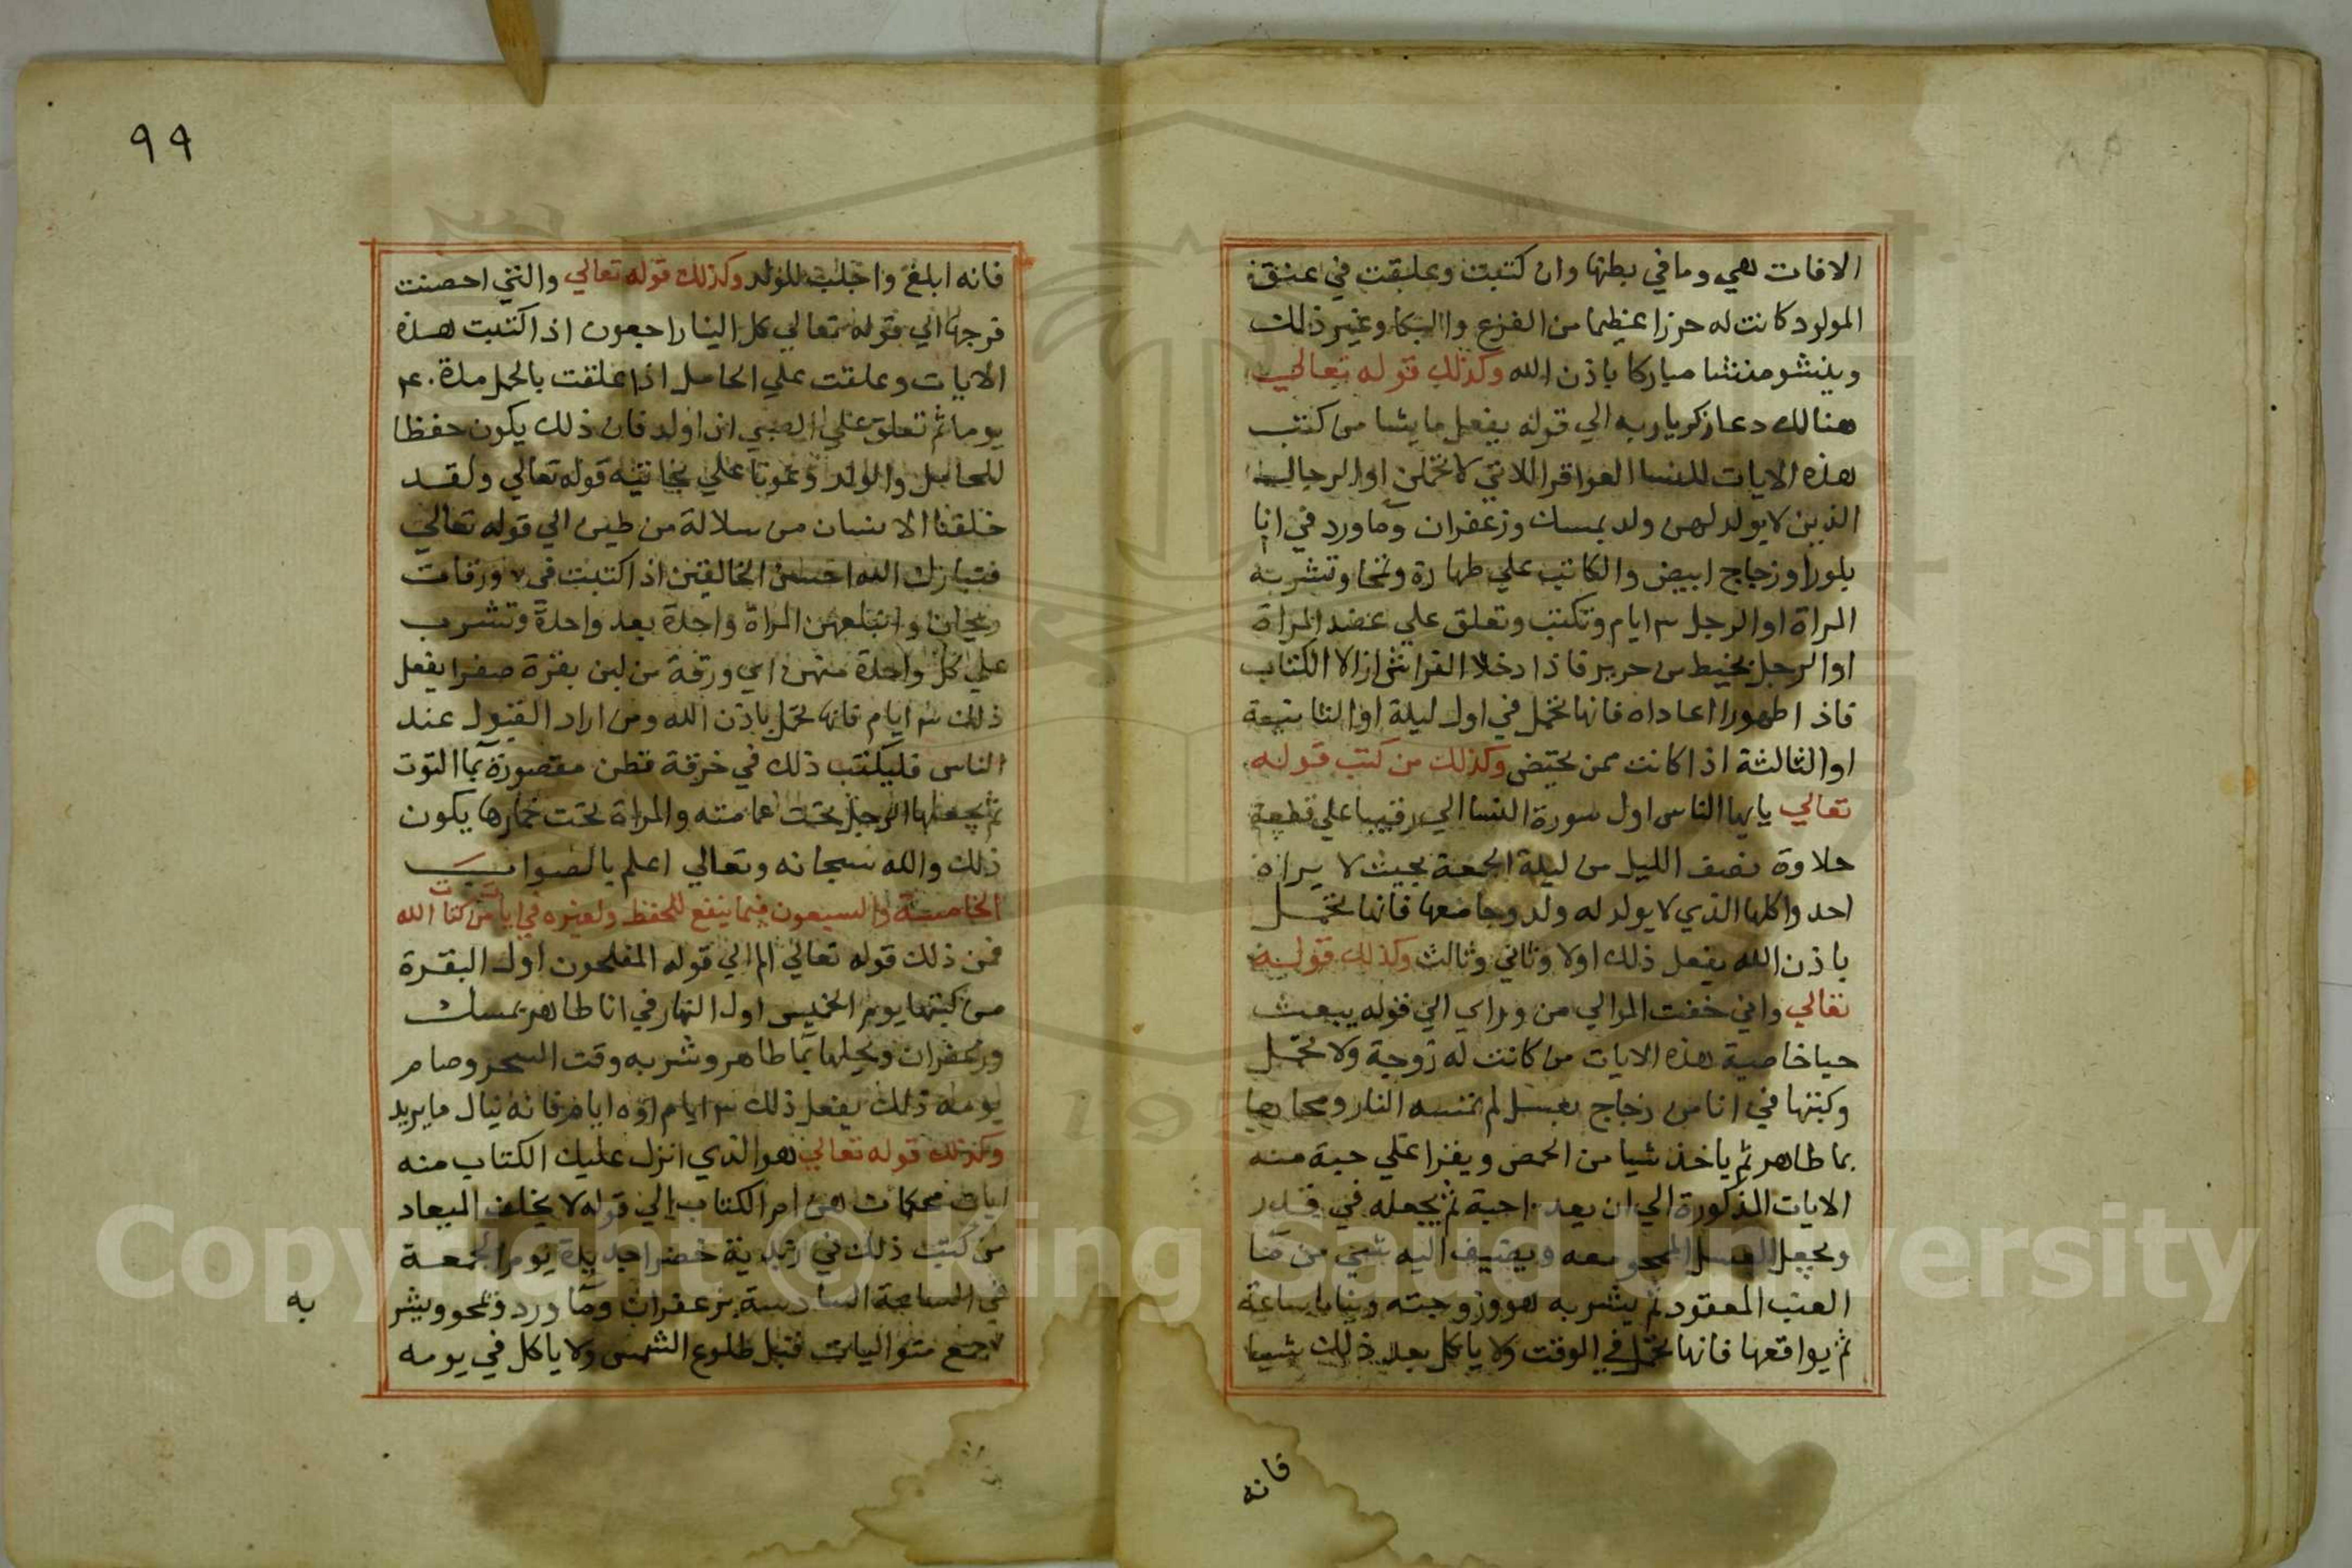 الافات هي وما في بطنها وان كتبت وعلقت في عنق
المولود كانت له حرزا عظيما من الفزع والبكا وغير ذلك
وينشو منشا مباركا باذن الله وكذلك قوله تعالي
هنالك دعا زكريا ربه الي قوله يفعل ما يشا من كتب
هذه الايات للنسا العواقر اللاتي لا تحملن او الرجال
الذين لا يولد لهن ولد بمسك وزعفران وما ورد في انا
بلور او زجاج ابيض والكاتب علي طهارة وتمحا وتشربه
المراة او الرجل ٣ ايام وتكتب وتعلق علي عضد المراة
او الرجل بخيط من حرير فاذا دخلا الفراش ازالا الكتاب
فاذا طهورا اعاداه فانها تحمل في اول ليلة او الثانية
او الثالثة اذا كانت ممن يحتض وكذلك من كتب قوله
تعالي يايها الناس اول سورة النسا الي رقيبا علي قطعة
حلاوة نصف الليل من ليلة الجمعة بحيث لا يراه
احد واكلها الذي لا يولد له ولد وجامعها فانها تحمل
باذن الله يفعل ذلك اولا وثاني وثالث وكذلك قوله
تعالي واني خفت الموالي من وراي الي قوله يبعث
حيا خاصية هذه الايات من كانت له زوجة ولا تحمل
وكتبها في انا من زجاج بعسل لم تمسه النار ومحاها
بما طاهر ثم ياخذ شيا من الحمص ويقرا علي حبة منه
الايات المذكورة الي ان يعد احبة ثم يجعله في قدر
ويجعل العسل الممحو معه ويضيف اليه شي من ما
العنب المعقود ثم يشربه هو وزوجته وينام ساعة
ثم يواقعها فانها تحمل في الوقت ولا ياكل بعد ذلك شيا
فانه
٩٩
فانه ابلغ واجلب للولد وكذلك قوله تعالي والتي احصنت
فرجها الي قوله تعالي كل الينا راجعون اذا كتبت هذه
الايات وعلقت علي الحامل اذا علقت بالحمل مدة ٤٠
يوما ثم تعلق علي الصبي اذا ولد فان ذلك يكون حفظا
للحامل والولد وعونا علي نجاته قوله تعالي ولقد
خلقنا الانسان من سلالة من طين الي قوله تعالي
فتبارك الله احسن الخالقين اذا كتبت في ٧ ورقات
وتبتلعهن المراة واحدة بعد واحدة وتشرب
علي كل واحدة منهن اي ورقة من لبن بقرة صفرا يفعل
ذلك ٣ ايام فانها تحمل باذن الله ومن اراد القبول عند
الناس فليكتب ذلك في خرقة قطن مقصورة بما التوت
ثم يجعلها الرجل تحت عمامته والمراة تحت خمارها يكون
ذلك والله سبحانه وتعالي اعلم بالصواب
الخامسة والسبعون فيما ينفع للحفظ ولغيره في ايات من كتاب الله
فمن ذلك قوله تعالي الم الي قوله المفلحون اول البقرة
من كتبها يوم الخميس اول النهار في انا طاهر بمسك
وزعفران ويحلها بما طاهر وشربه وقت السحر وصام
يومه ذلك يفعل ذلك ٣ ايام او ٥ ايام فانه ينال ما يريد
وكذلك قوله تعالي هو الذي انزل عليك الكتاب منه
ايات محكمات هن ام الكتاب الي قوله لا يخلف الميعاد
من كتب ذلك في زبدية خضرا جديدة يوم الجمعة
في الساعة السادسة بزعفران وما ورد وتمحو ويشر
٧ جمع متواليات قبل طلوع الشمس ولا ياكل في يومه
به
Copyright © King Saud University